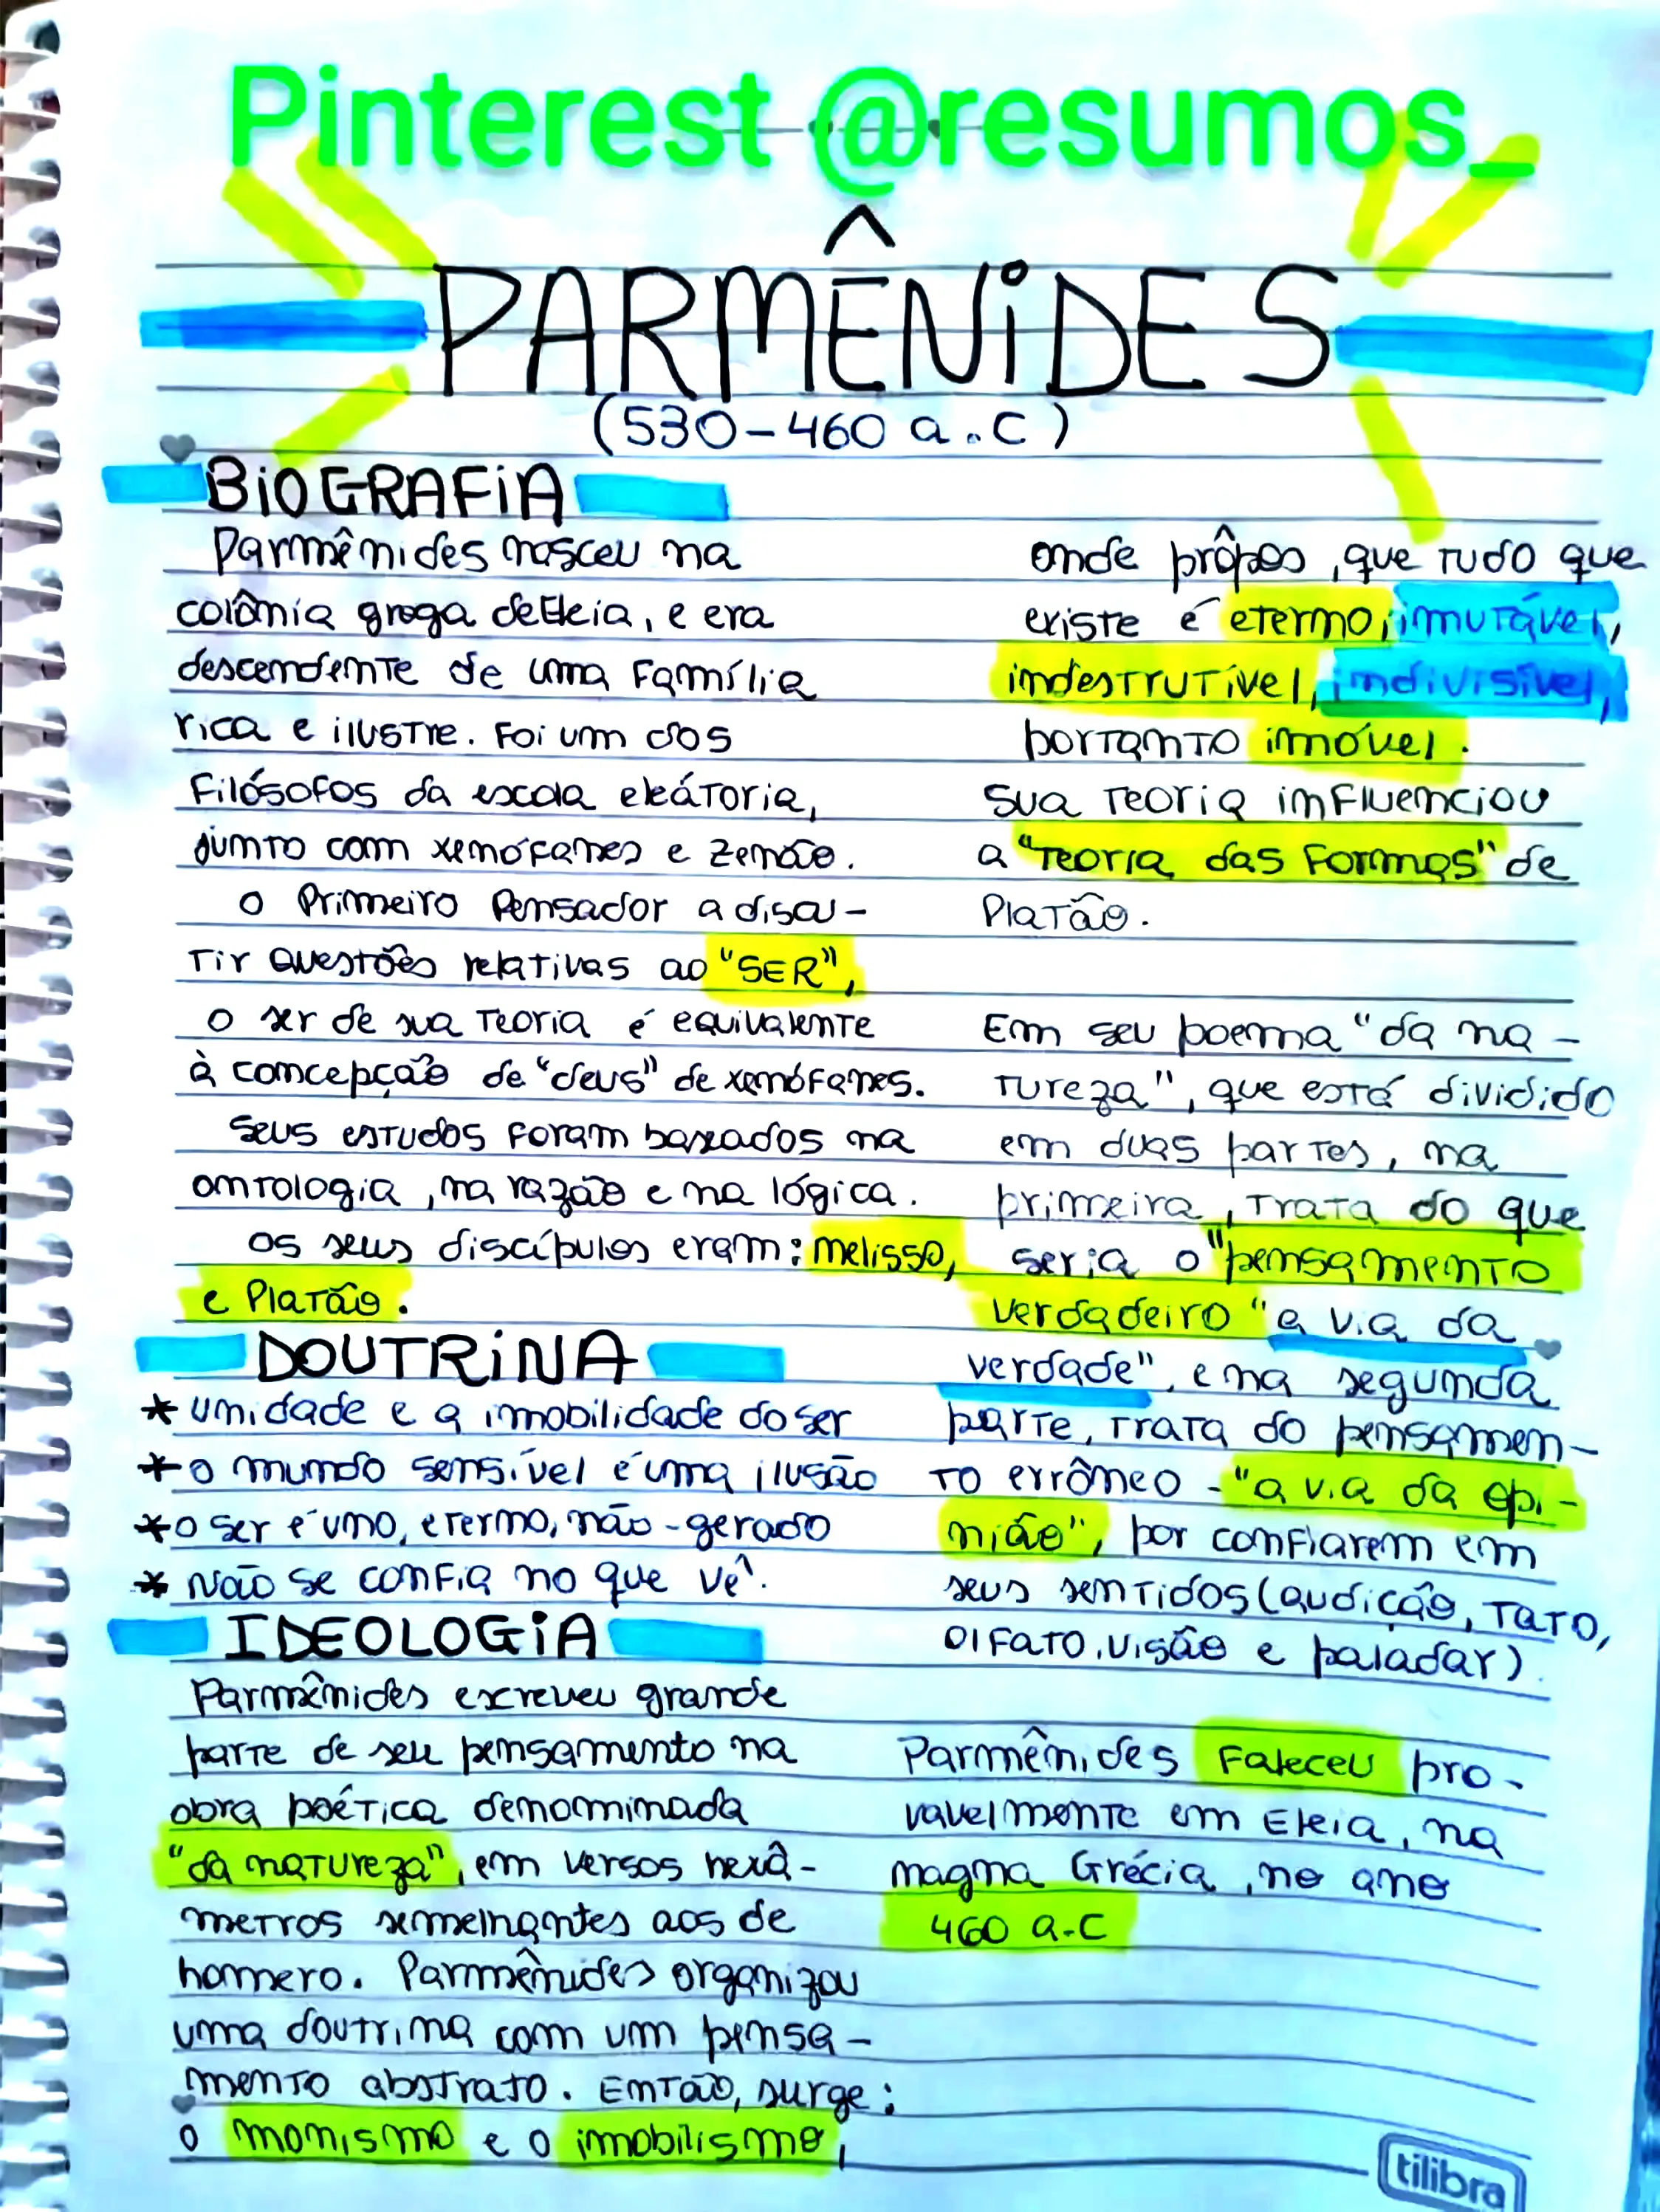 Pinterest @resumos_
PARMÊNIDES
(530-460 a.C)
BIOGRAFIA
Parmênides nasceu na
colônia grega de Eleia, e era
descendente de uma família
rica e ilustre. Foi um dos
filósofos da escola eleátoria,
junto com xenófanes e zenão.
o primeiro pensador a discu-
tir questões relativas ao "SER",
o ser de sua teoria é equivalente
à concepção de "deus" de xenófanes.
Seus estudos foram baseados na
ontologia, na razão e na lógica.
os seus discípulos eram: melisso,
e Platão.
DOUTRINA
* unidade e a imobilidade do ser
* o mundo sensível é uma ilusão
* o ser é uno, eterno, não-gerado
* Não se confia no que vê.
IDEOLOGIA
Parmênides escreveu grande
parte de seu pensamento na
obra poética denominada
"da natureza", em versos hexâ-
metros semelhantes aos de
homero. Parmênides organizou
uma doutrina com um pensa-
mento abstrato. Então, surge:
o monismo e o imobilismo,
onde prôpos, que tudo que
existe é eterno, imutável,
indestrutível, indivisível,
portanto imóvel.
Sua teoria influenciou
a "teoria das formas" de
Platão.
Em seu poema "da na-
tureza", que está dividido
em duas partes, na
primeira, trata do que
seria o "pensamento
verdadeiro "a via da
verdade", e na segunda
parte, trata do pensamen-
to errôneo - "a via da opi-
nião", por confiarem em
seus sentidos (audição, tato,
olfato, visão e paladar).
Parmênides faleceu pro-
vavelmente em Eleia, na
magna Grécia, no ano
460 a.C
tilibra